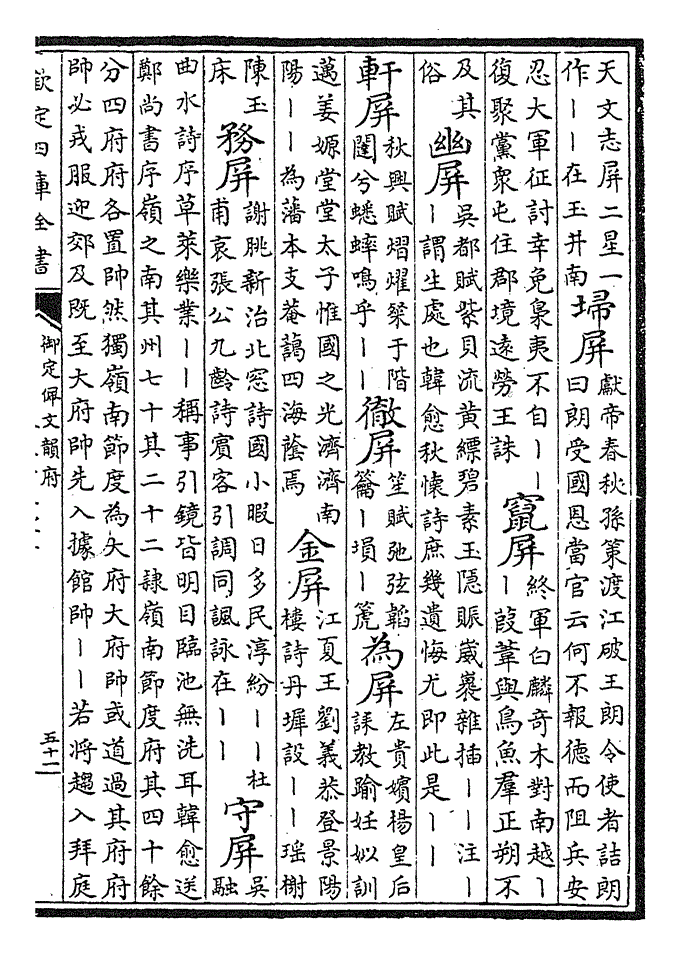 天文志屏二星一
作丨丨在玉井南
埽屏
獻帝春秋孫策渡江破王朗令使者詰朗
曰朗受國恩當官云何不報德而阻兵安
忍大軍征討幸免梟夷不自丨丨
復聚黨衆屯住郡境遠勞王誅
竄屏
終軍白麟竒木對南越丨
丨葭葦與鳥魚羣正朔不
及其
俗
幽屏
吳都賦紫貝流黄縹碧素玉隱賑崴裹雜插丨丨注丨
丨謂生處也韓愈秋懐詩庶幾遺悔尤即此是丨丨
軒屏
秋興賦熠燿粲于階
闥兮蟋蟀鳴乎丨丨
徹屏
笙賦弛弦韜
籥丨塤丨篪
為屏
左貴嬪楊皇后
誄教踰妊姒訓
邁姜嫄堂堂太子惟國之光濟濟南
陽丨丨為藩本支菴藹四海蔭焉
金屏
江夏王劉義恭登景陽
樓詩丹墀設丨丨瑶榭
陳玉
床
務屏
謝朓新治北窓詩國小暇日多民淳紛丨丨杜
甫哀張公九齡詩賓客引調同諷詠在丨丨
守屏
吳
融
曲水詩序草萊樂業丨丨稱事引鏡皆明目臨池無洗耳韓愈送
鄭尚書序嶺之南其州七十其二十二隸嶺南節度府其四十餘
分四府府各置帥然獨嶺南節度為大府大府帥或道過其府府
帥必戎服迎郊及既至大府帥先入據館帥丨丨若將趨入拜庭
欽定四庫全書
御定佩文韻府
五十二